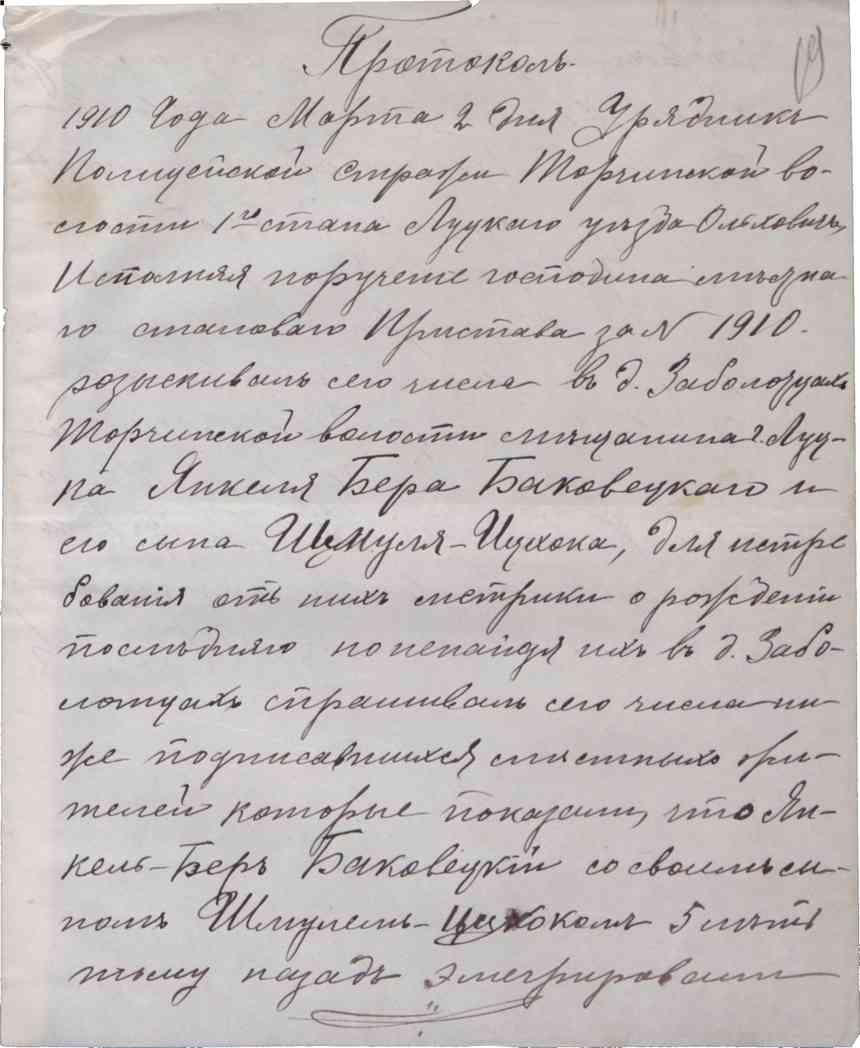 Протоколъ
19
1910 Года Марта 2 дня Урядникъ
Полицейской стражи Торчинской во-
лости 1го стана Луцкаго уѣзда Ольховичъ,
Исполняя порученіе господина мѣстна-
го становаго Пристава за N 1910.
розыскивалъ сего числа въ д. Заболотцахъ
Торчинской волости мѣщанина г. Луц-
ка Янкеля Бера Баковецкаго и
его сына Шмуля-Ицхока, для истре
бованія отъ нихъ метрики о рожденіи
послѣдняго но ненайдя ихъ въ д. Забо-
лотцахъ спрашивалъ сего числа ни-
же подписавшихся мѣстныхъ жи-
телей которые показали, что Ян-
кель-Беръ Баковецкій со своимъ сы-
номъ Шмулемъ-Ицхокомъ 5 лѣтъ
тому назадъ эмегрировали